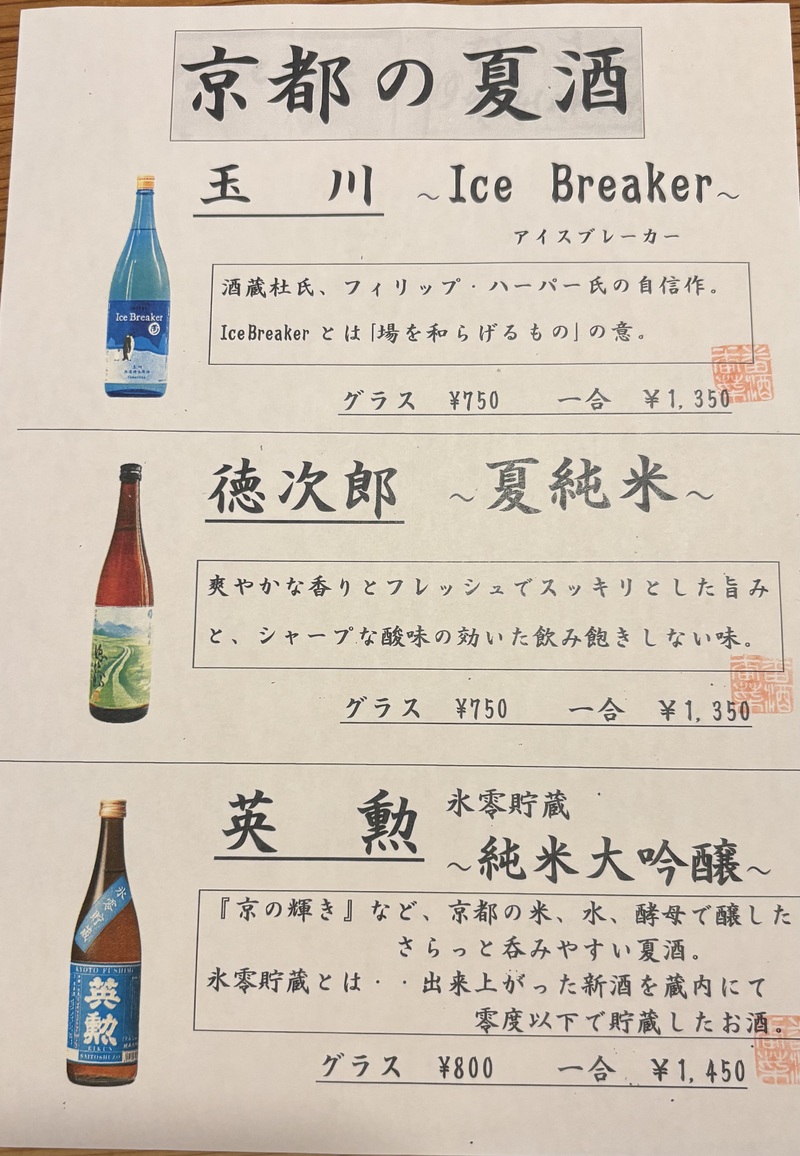 京都の夏酒
玉川 ～Ice Breaker～
アイスブレーカー
酒蔵杜氏、フィリップ・ハーパー氏の自信作。
IceBreaker とは「場を和らげるもの」の意。
グラス ¥750 一合 ¥1,350
Ice Breaker
徳次郎 ～夏純米～
爽やかな香りとフレッシュでスッキリとした旨み
と、シャープな酸味の効いた飲み飽きしない味。
グラス ¥750 一合 ¥1,350
英勲 氷零貯蔵
～純米大吟醸～
『京の輝き』など、京都の米、水、酵母で醸した
さらっと呑みやすい夏酒。
氷零貯蔵とは・・出来上がった新酒を蔵内にて
零度以下で貯蔵したお酒。
グラス ¥800 一合 ¥1,450
氷零貯蔵
KYOTO FUSHIMI
英勲
EIKUN
SAITOSHUZO